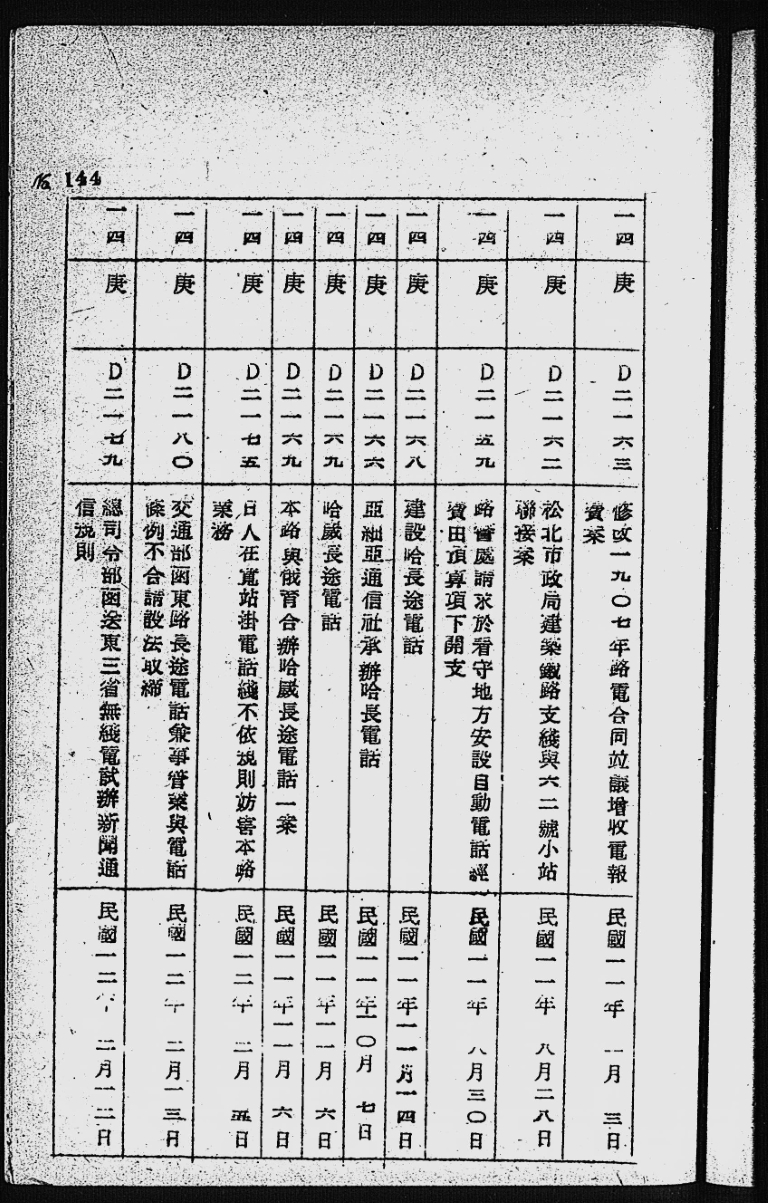 144
一四 庚 D二一六三 修改一九〇七年路電合同竝議增收電報
費案 民國一一年 一月 三日
一四 庚 D二一六二 松北市政局建築鐵路支綫與六二號小站
聯接案 民國一一年 八月二八日
一四 庚 D二一五九 路警處請求於看守地方安設自動電話經
費由預算項下開支 民國一一年 八月三〇日
一四 庚 D二一六八 建設哈長途電話 民國一一年一一月一四日
一四 庚 D二一六六 亞細亞通信社承辦哈長電話 民國一一年一〇月 七日
一四 庚 D二一六九 哈威長途電話 民國一一年一一月 六日
一四 庚 D二一六九 本路與俄育合辦哈威長途電話一案 民國一一年一一月 六日
一四 庚 D二一七五 日人在寬站掛電話綫不依規則妨害本路
業務 民國一二年 二月 五日
一四 庚 D二一八〇 交通部函東路長途電話兼事營業與電話
條例不合請設法取締 民國一二年 二月一三日
一四 庚 D二一七九 總司令部函送東三省無綫電試辦新聞通
信規則 民國一二年 二月一二日